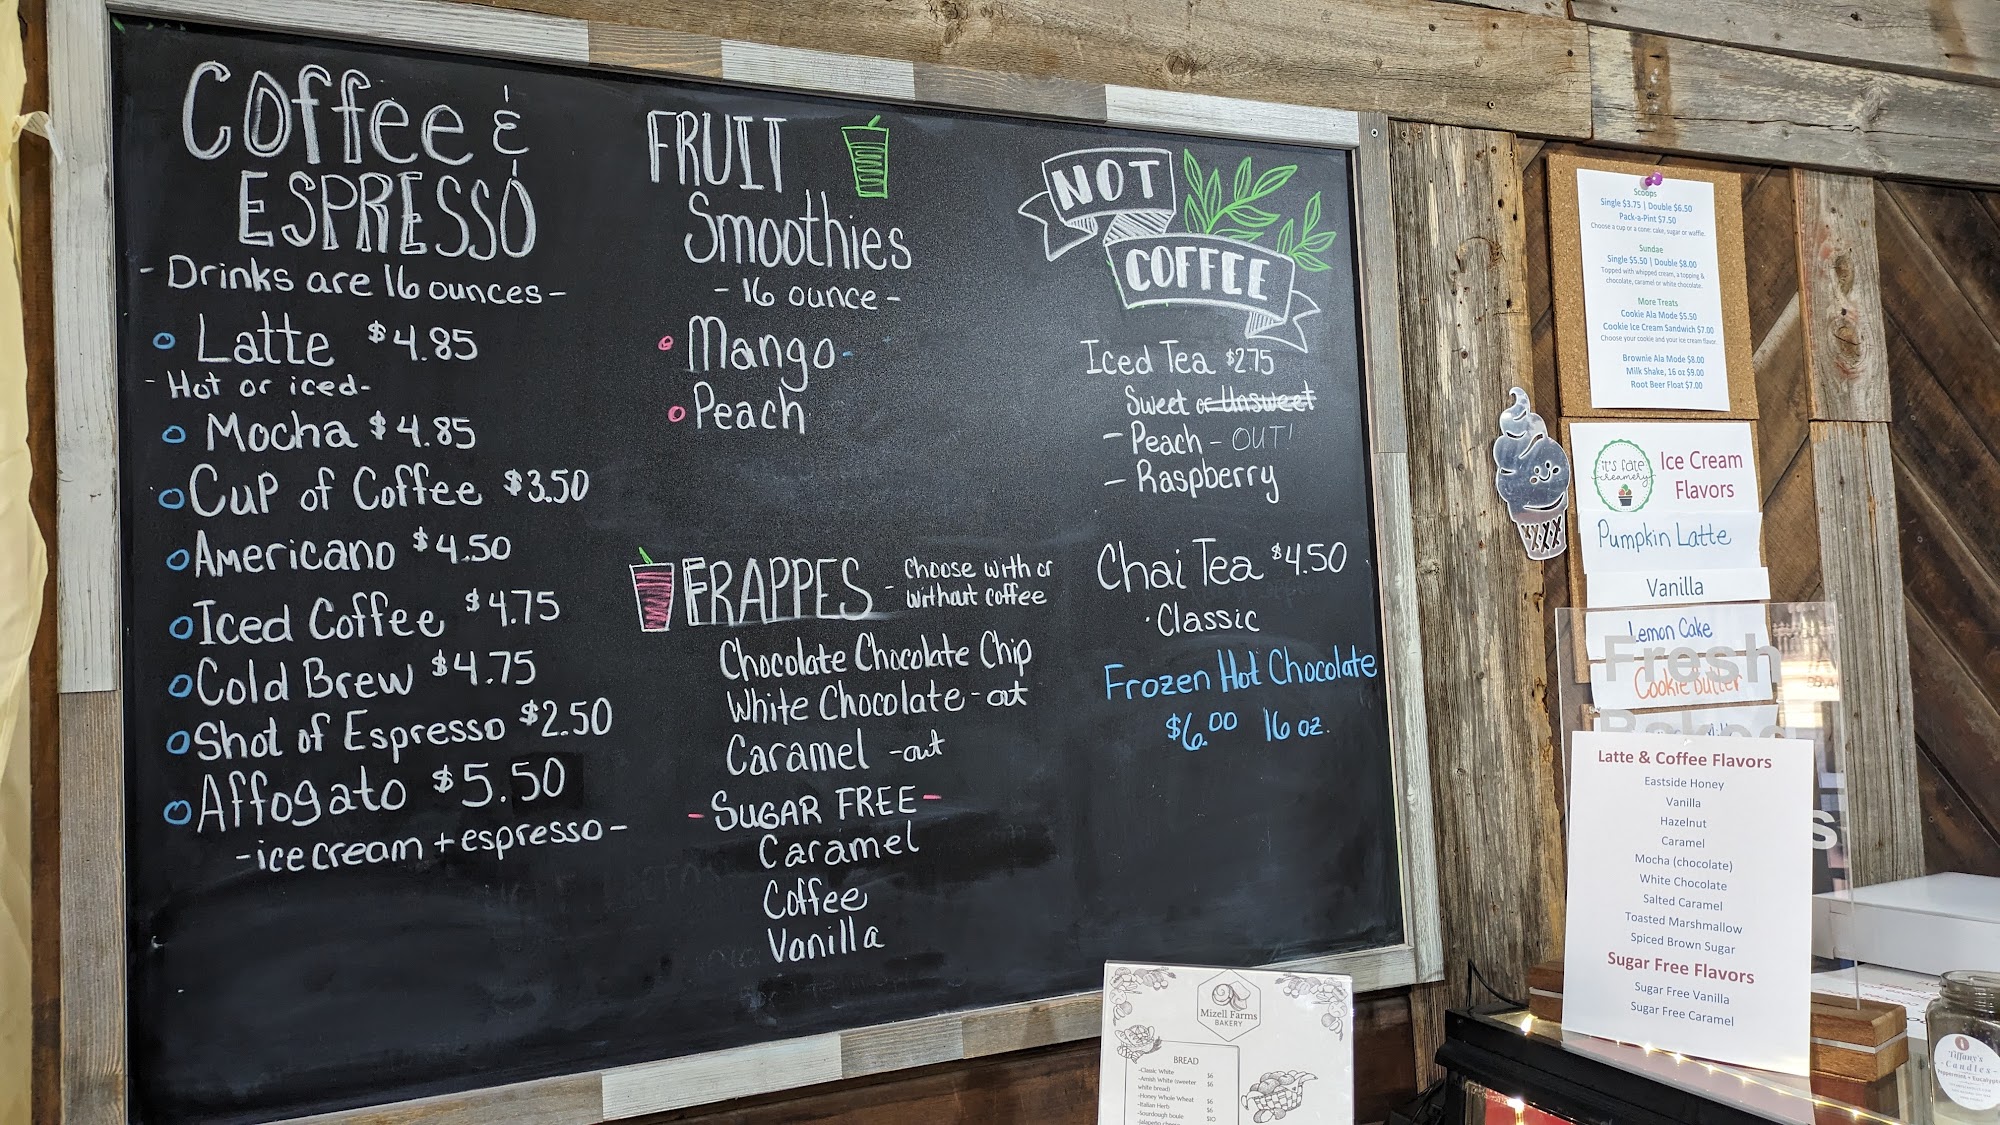 Coffee &
ESPRESSO
- Drinks are 16 ounces -
Latte $4.85
- Hot or iced -
Mocha $4.85
Cup of Coffee $3.50
Americano $4.50
Iced Coffee $4.75
Cold Brew $4.75
Shot of Espresso $2.50
Affogato $5.50
- ice cream + espresso -
FRUIT
Smoothies
- 16 ounce -
Mango
Peach
FRAPPES - Choose with or
without coffee
Chocolate Chocolate Chip
White Chocolate - out
Caramel - out
- SUGAR FREE -
Caramel
Coffee
Vanilla
NOT
COFFEE
Iced Tea $2.75
Sweet or Unsweet
- Peach - OUT!
- Raspberry
Chai Tea $4.50
· Classic
Frozen Hot Chocolate
$6.00 16 oz.
Scoops
Single $3.75 | Double $6.50
Pack-a-Pint $7.50
Choose a cup or a cone: cake, sugar or waffle.
Sundae
Single $5.50 | Double $8.00
Topped with whipped cream, a topping &
chocolate, caramel or white chocolate.
More Treats
Cookie Ala Mode $5.50
Cookie Ice Cream Sandwich $7.00
Choose your cookie and your ice cream flavor.
Brownie Ala Mode $8.00
Milk Shake, 16 oz $9.00
Root Beer Float $7.00
it's fate
creamery
Ice Cream
Flavors
Pumpkin Latte
Vanilla
Lemon Cake
Fresh
Cookie Butter
Baked
Latte & Coffee Flavors
Eastside Honey
Vanilla
Hazelnut
Caramel
Mocha (chocolate)
White Chocolate
Salted Caramel
Toasted Marshmallow
Spiced Brown Sugar
Sugar Free Flavors
Sugar Free Vanilla
Sugar Free Caramel
Mizell Farms
BAKERY
BREAD
-Classic White $6
-Amish White (sweeter $6
white bread)
-Honey Whole Wheat $6
-Italian Herb $6
-Sourdough boule $10
-Jalapeño
Tiffany's
Candles
Peppermint + Eucalyptus